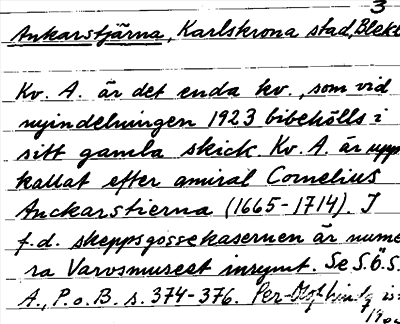 3
Ankarstjärna, Karlskrona stad, Blek
Kv. A. är det enda kv., som vid
nyindelningen 1923 bibehölls i
sitt gamla skick. Kv. A. är upp
kallat efter amiral Cornelius
Anckarstierna (1665-1714). I
f.d. skeppsgossekasernen är nume
ra Varvsmuseet inrymt. Se S.Ö.S.
A., P.o.B. s. 374-376. Per-Olof